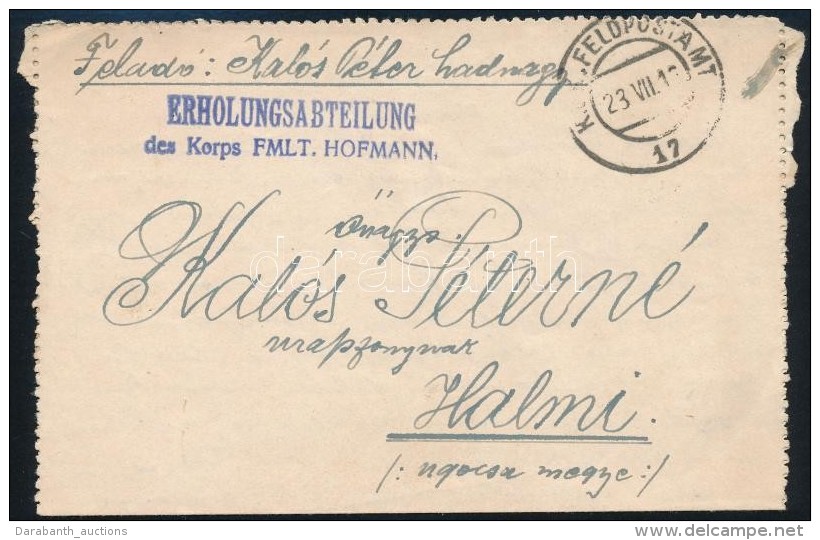 Feladó: Kalós Péter hadnagy
K.u.K. FELDPOSTAMT
23 VII.1
17
ERHOLUNGSABTEILUNG
des Korps FMLT. HOFMANN.
Kalós Péterné
darabanth
Halmi.
/: ugocsa megye:/
Darabanth_auctions
www.delcampe.net